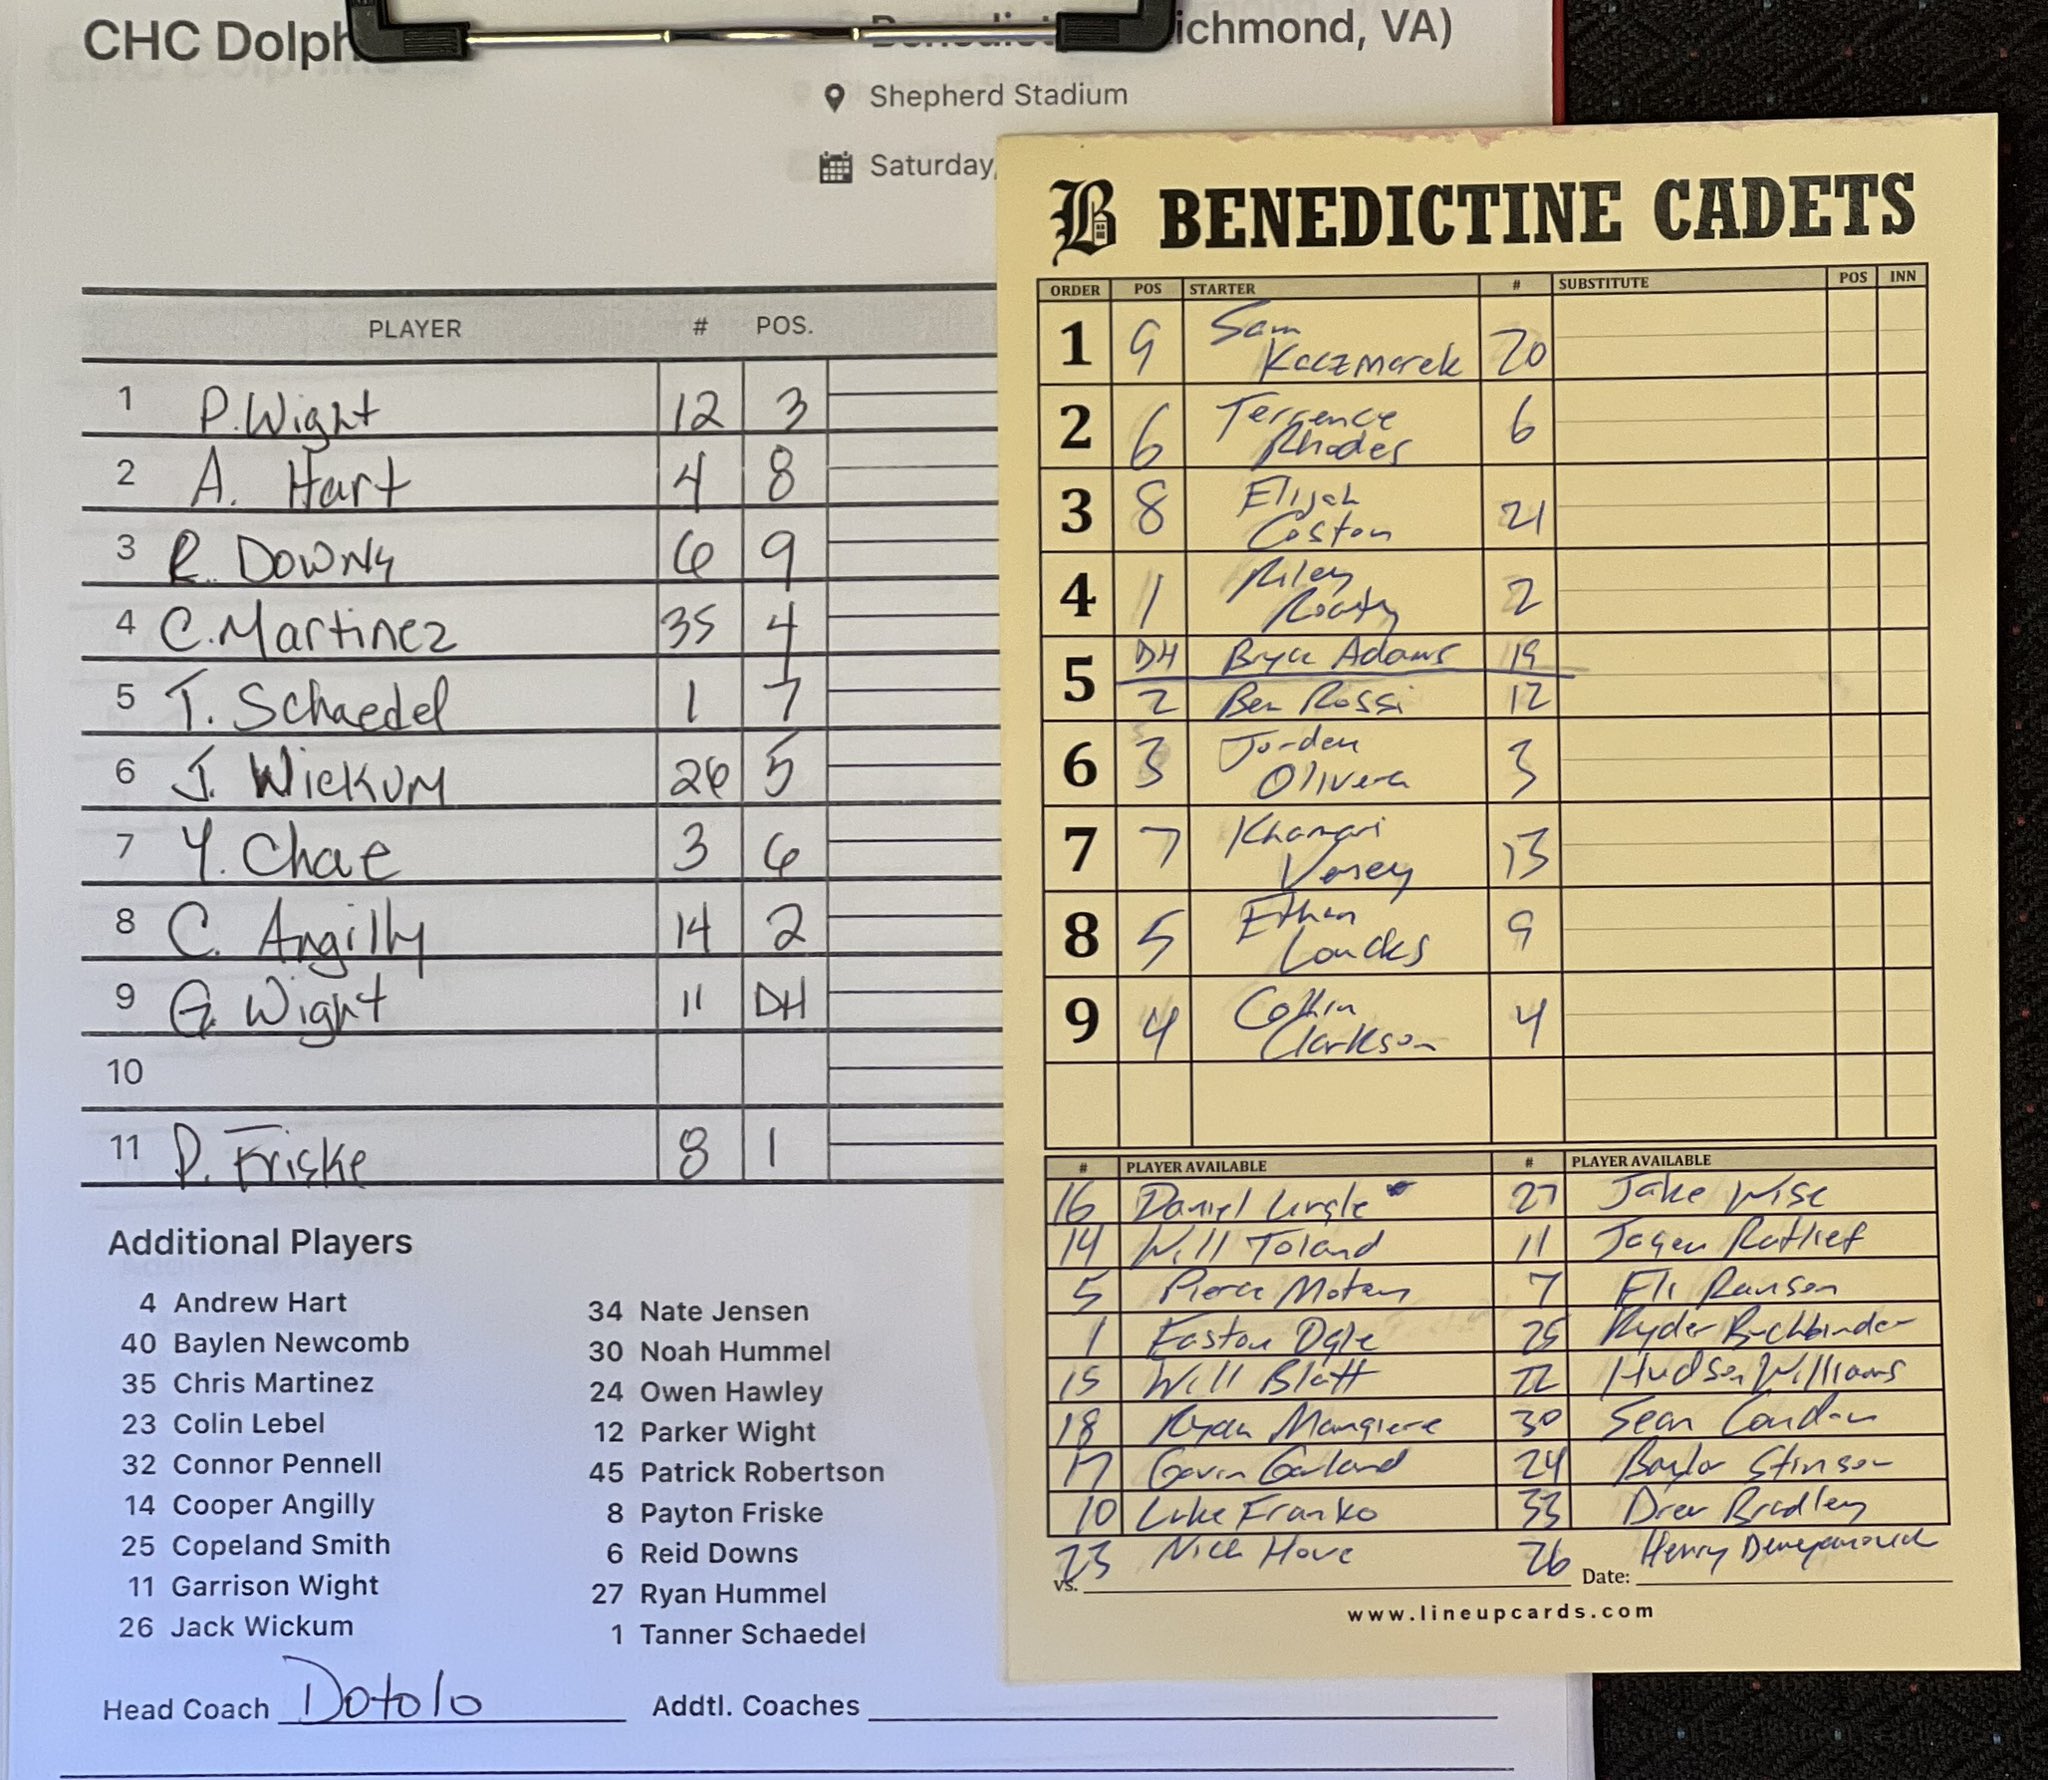 CHC Dolph
ichmond, VA)
Shepherd Stadium
Saturday,
PLAYER # POS.
1 P. Wight 12 3
2 A. Hart 4 8
3 R. Downs 6 9
4 C. Martinez 35 4
5 T. Schaedel 1 7
6 J. Wickum 26 5
7 Y. Chae 3 6
8 C. Angilly 14 2
9 G. Wight 11 DH
10
11 P. Friske 8 1
Additional Players
4 Andrew Hart
40 Baylen Newcomb
35 Chris Martinez
23 Colin Lebel
32 Connor Pennell
14 Cooper Angilly
25 Copeland Smith
11 Garrison Wight
26 Jack Wickum
34 Nate Jensen
30 Noah Hummel
24 Owen Hawley
12 Parker Wight
45 Patrick Robertson
8 Payton Friske
6 Reid Downs
27 Ryan Hummel
1 Tanner Schaedel
Head Coach Dotolo
Addtl. Coaches
B BENEDICTINE CADETS
ORDER POS STARTER # SUBSTITUTE POS INN
1 9 Sam Kaczmarek 20
2 6 Terrence Rhodes 6
3 8 Elijah Coston 21
4 1 Riley Roarty 2
5 DH Bryce Adams 19
2 Ben Rossi 12
6 3 Jorden Olivera 3
7 7 Khamari Vasey 13
8 5 Ethan Loucks 9
9 4 Collin Clarkson 4
# PLAYER AVAILABLE # PLAYER AVAILABLE
16 Daniel Lingle 27 Jake Wise
14 Will Toland 11 Jagen Ratlief
5 Pierce Motan 7 Eli Ranson
1 Easton Ogle 25 Ryder Buchbinder
15 Will Blatt 22 Hudson Williams
18 Ryan Mangiere 30 Sean Condon
17 Gavin Garland 24 Baylor Stinson
10 Luke Franko 33 Drew Bradley
23 Nick Hove 26 Henry
vs. Date:
www.lineupcards.com